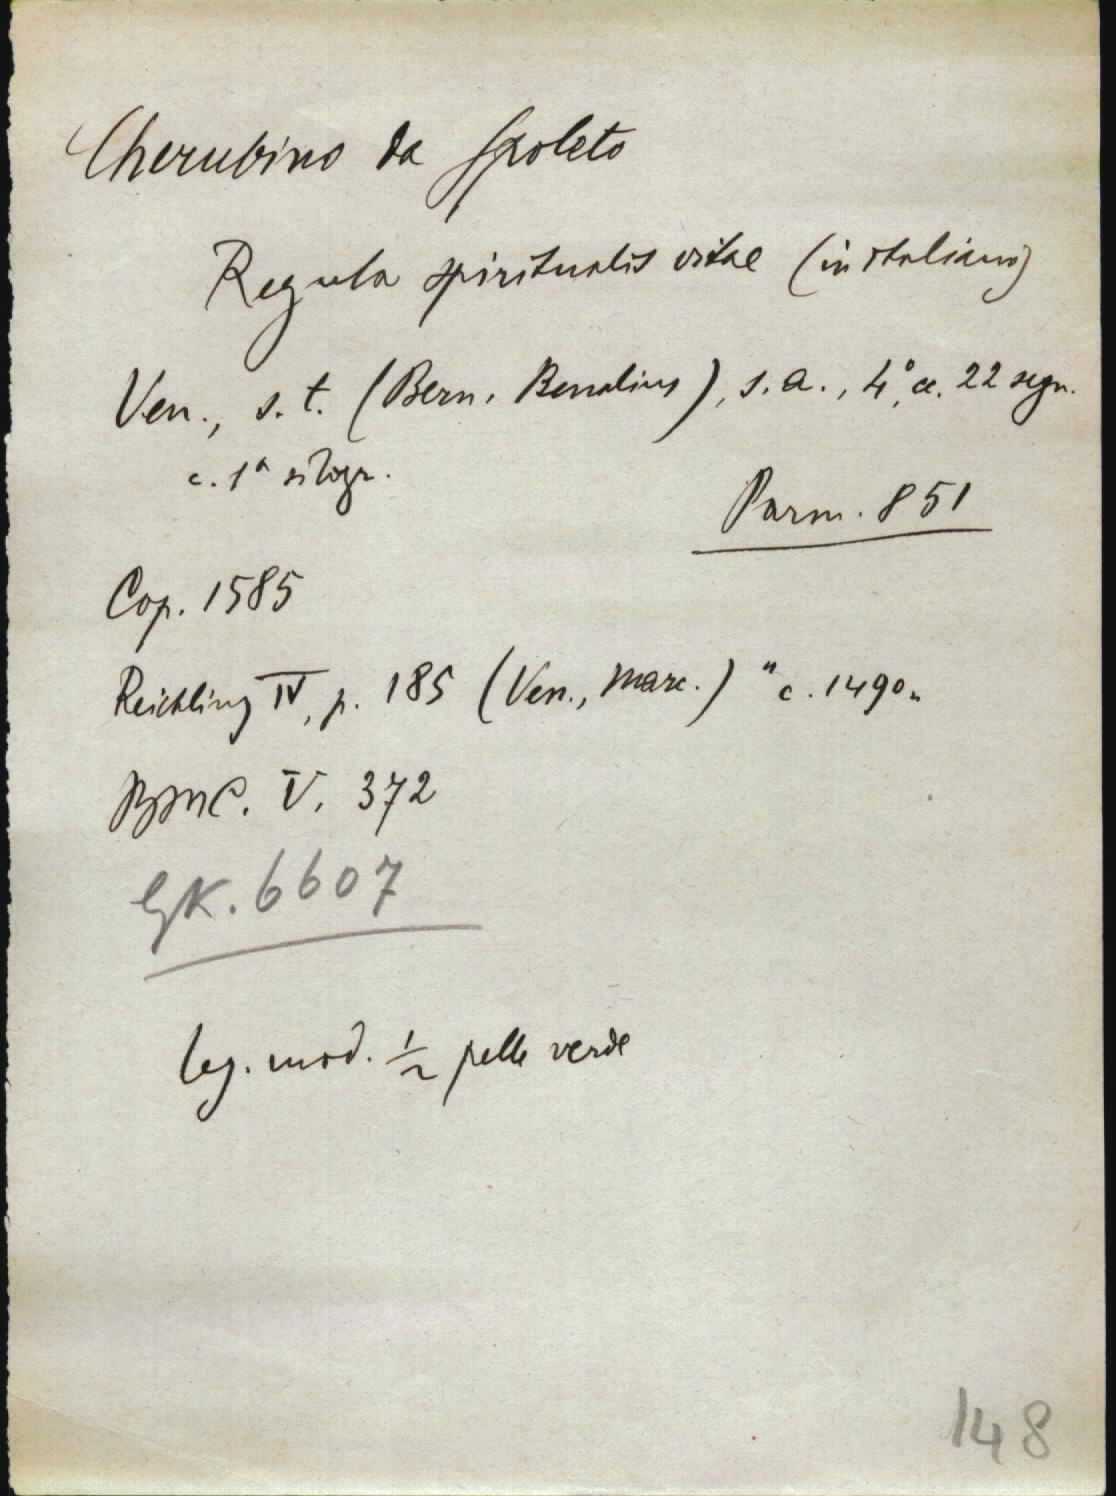 Cherubino da Spoleto
Regula spiritualis vitae (in italiano)
Ven., s. t. (Bern. Benalius), s. a., 4°, cc. 22 segn.
c. 1ª silogr.
Parm. 851
Cop. 1585
Reichling IV, p. 185 (Ven., Marc.) "c. 1490"
BMC. V. 372
GK. 6607
leg. mod. 1/2 pelle verde
148